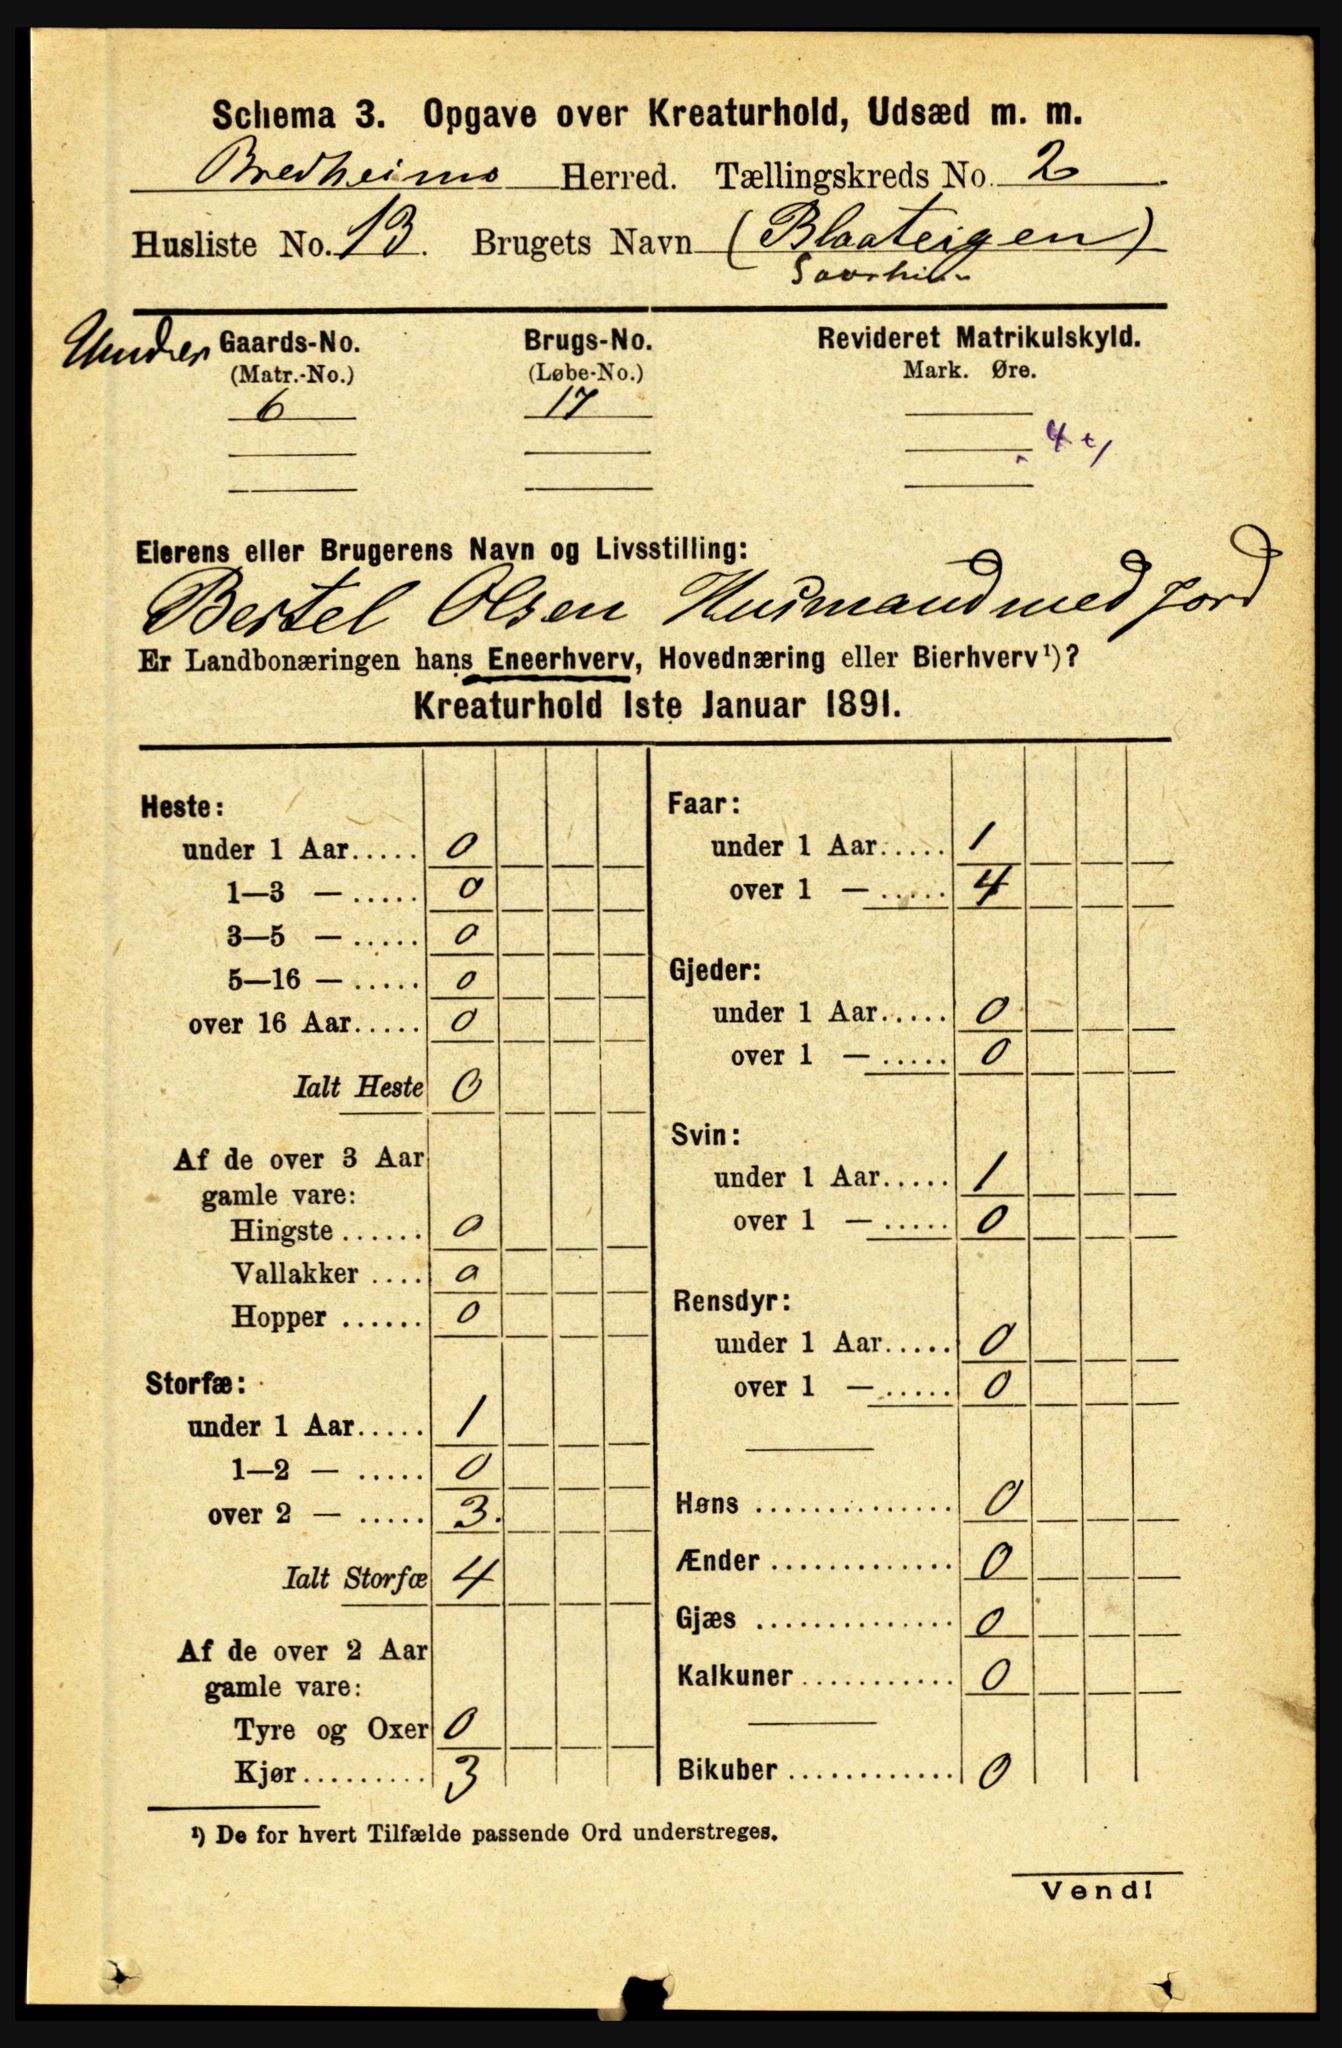 Schema 3. Opgave over Kreaturhold, Udsæd m. m.
Bredheims Herred. Tællingskreds No. 2
Husliste No. 13. Brugets Navn (Blaateigen)
Under Gaards-No. Brugs-No. Revideret Matrikulskyld.
(Matr.-No.) (Løbe-No.) Mark. Øre.
6 17
Eierens eller Brugerens Navn og Livsstilling:
Bertel Olsen Husmand med Jord
Er Landbonæringen hans Eneerhverv, Hovednæring eller Bierhverv¹)?
Kreaturhold 1ste Januar 1891.
Heste:
under 1 Aar..... 0
1—3 — ..... 0
3—5 — ..... 0
5—16 — ..... 0
over 16 Aar..... 0
Ialt Heste 0
Af de over 3 Aar
gamle vare:
Hingste ...... 0
Vallakker .... 0
Hopper ...... 0
Storfæ:
under 1 Aar..... 1
1—2 — ..... 0
over 2 — ..... 3.
Ialt Storfæ 4
Af de over 2 Aar
gamle vare:
Tyre og Oxer 0
Kjør.......... 3
Faar:
under 1 Aar..... 1
over 1 — ..... 4
Gjeder:
under 1 Aar..... 0
over 1 — ..... 0
Svin:
under 1 Aar..... 1
over 1 — ..... 0
Rensdyr:
under 1 Aar..... 0
over 1 — ..... 0
Høns .............. 0
Ænder ............. 0
Gjæs .............. 0
Kalkuner ........... 0
Bikuber ............ 0
¹) De for hvert Tilfælde passende Ord understreges.
Vend!